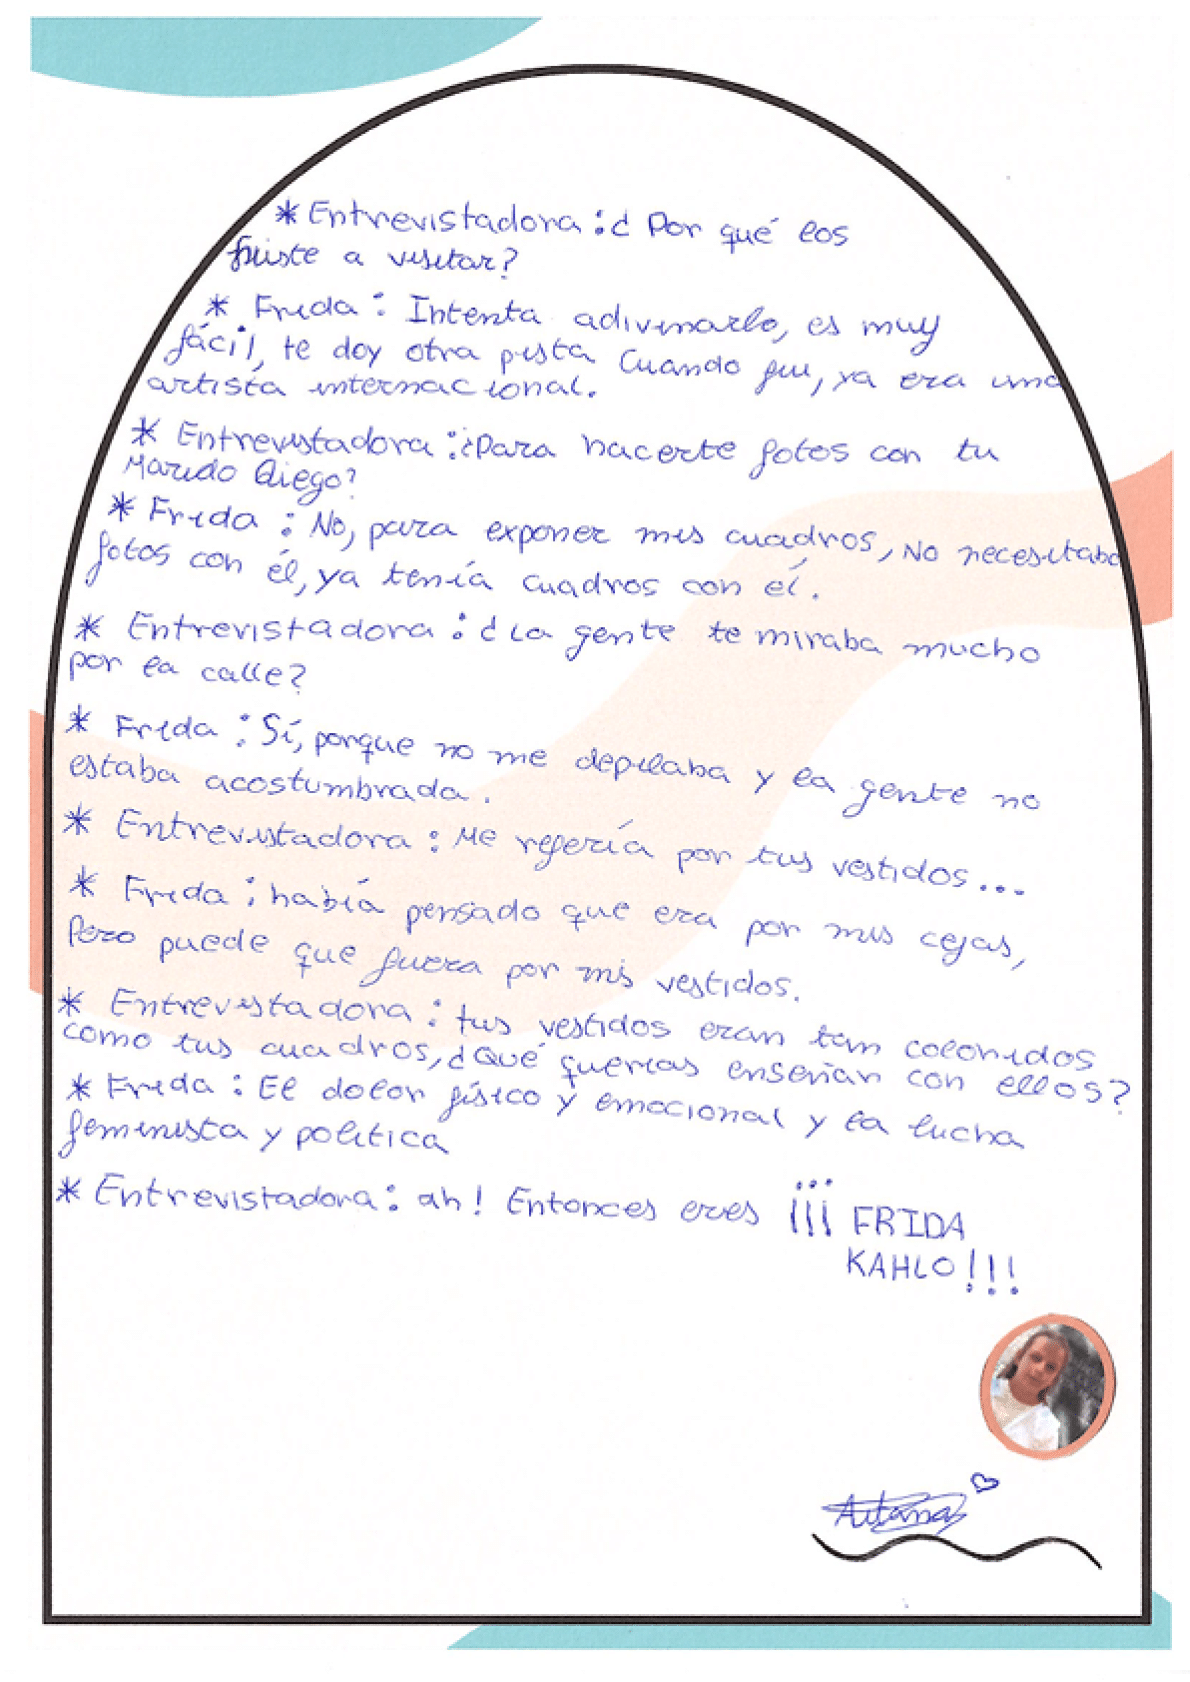 * Entrevistadora: ¿Por qué los
fuiste a visitar?
* Frida: Intenta adivinarlo, es muy
fácil, te doy otra pista Cuando fui, ya era una
artista internacional.
* Entrevistadora: ¿Para hacerte fotos con tu
Marido Diego?
* Frida: No, para exponer mis cuadros, No necesitaba
fotos con él, ya tenía cuadros con él.
* Entrevistadora: ¿La gente te miraba mucho
por la calle?
* Frida: Sí, porque no me depilaba y la gente no
estaba acostumbrada.
* Entrevistadora: Me refería por tus vestidos...
* Frida: había pensado que era por mis cejas,
Pero puede que fuera por mis vestidos.
* Entrevistadora: tus vestidos eran tan coloridos
como tus cuadros, ¿Qué querías enseñar con ellos?
* Frida: El dolor físico y emocional y la lucha
feminista y política
* Entrevistadora: ah! Entonces eres ¡¡¡ FRIDA
KAHLO!!!
Aitana